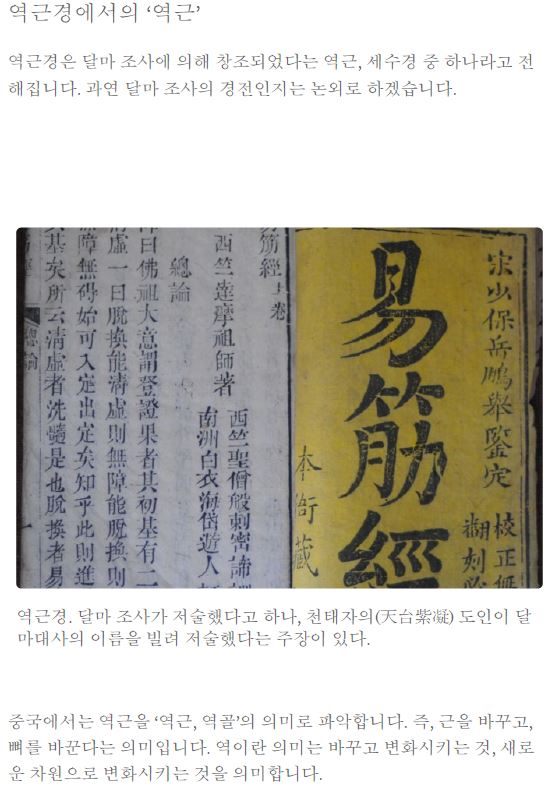 역근경에서의 ‘역근’
역근경은 달마 조사에 의해 창조되었다는 역근, 세수경 중 하나라고 전
해집니다. 과연 달마 조사의 경전인지는 논외로 하겠습니다.
宋少保岳鵬舉鑒定
校正無
翻刻必
易筋經
本衙藏
易筋經上卷
西竺達摩祖師著
西竺聖僧般剌密諦
南洲白衣海岱遊人
總論
曰佛祖大意謂登證果者其初基有二
清虛一曰脫換能清虛則無障能脫換則
障無碍始可入定出定矣知乎此則進
其基矣所云清虛者洗髓是也脫換者易
總論
역근경. 달마 조사가 저술했다고 하나, 천태자의(天台紫凝) 도인이 달
마대사의 이름을 빌려 저술했다는 주장이 있다.
중국에서는 역근을 ‘역근, 역골’의 의미로 파악합니다. 즉, 근을 바꾸고,
뼈를 바꾼다는 의미입니다. 역이란 의미는 바꾸고 변화시키는 것, 새로
운 차원으로 변화시키는 것을 의미합니다.